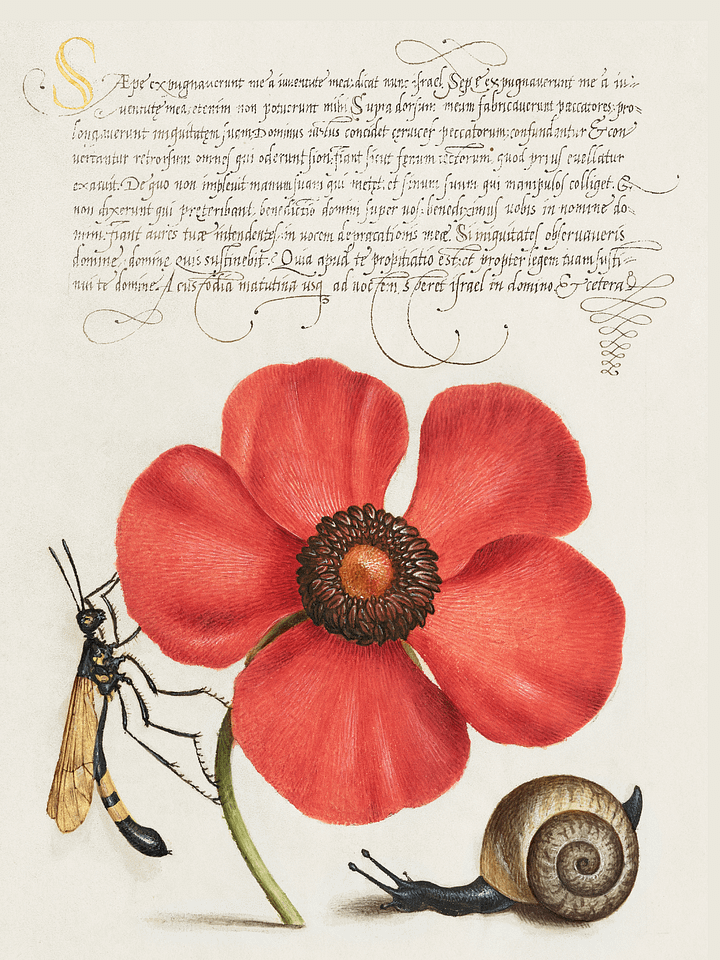 Sæpe expugnaverunt me a iuventute mea: dicat nunc israel. Sepe expugnaverunt me a iu=
ventute mea, etenim non potuerunt mihi. Supra dorsum meum fabricaverunt paccatores: pro=
longaverunt iniquitatem suam. Dominus iustus concidet cervices peccatorum: confundantur & con
vertantur retrorsum omnes qui oderunt sion. fiant sicut fenum tectorum, quod prius evellatur
exaruit. De quo non implevit manum suam qui metet: et sinum suum qui manipulos colliget. &
non dixerunt qui preteribant, benedictio domini super vos: benediximus vobis in nomine do=
mini. fiant aures tuæ intendentes: in vocem deprecationis meæ. Si iniquitates observaveris
domine, domine quis sustinebit? Quia apud te propitiatio est: et propter legem tuam susti=
nui te domine. A custodia matutina usq ad noctem, speret israel in domino. Et cetera